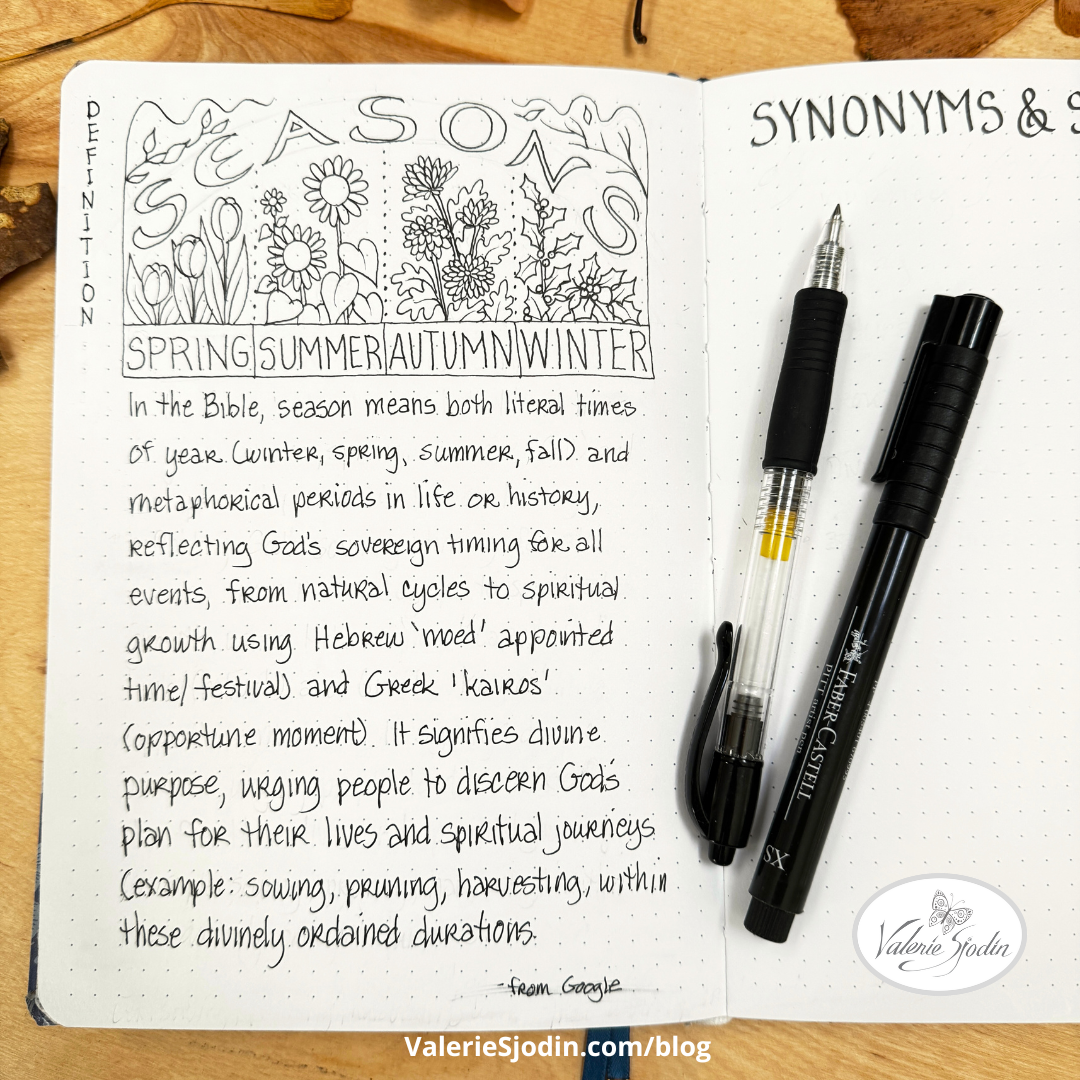 DEFINITION
SEASONS
SPRING SUMMER AUTUMN WINTER
In the Bible, season means both literal times
of year (winter, spring, summer, fall) and
metaphorical periods in life or history,
reflecting God's sovereign timing for all
events, from natural cycles to spiritual
growth using Hebrew 'moed' appointed
time/festival) and Greek 'kairos'
(opportune moment). It signifies divine
purpose, urging people to discern God's
plan for their lives and spiritual journeys
(example: sowing, pruning, harvesting, within
these divinely ordained durations.
-from Google
SYNONYMS & S
FABER-CASTELL
PITT artist pen
XS
Valerie Sjodin
ValerieSjodin.com/blog